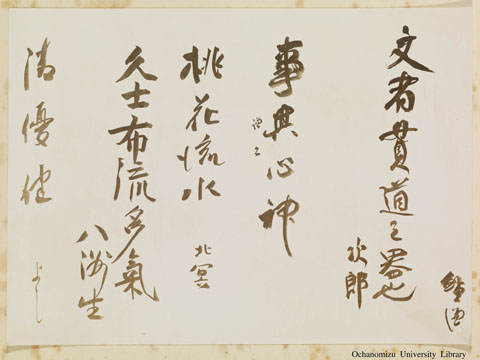 文者貫道之器也
次郎
事與心神
桃花流水
北冥
久士布流多氣
八洲生
清優健
Ochanomizu University Library